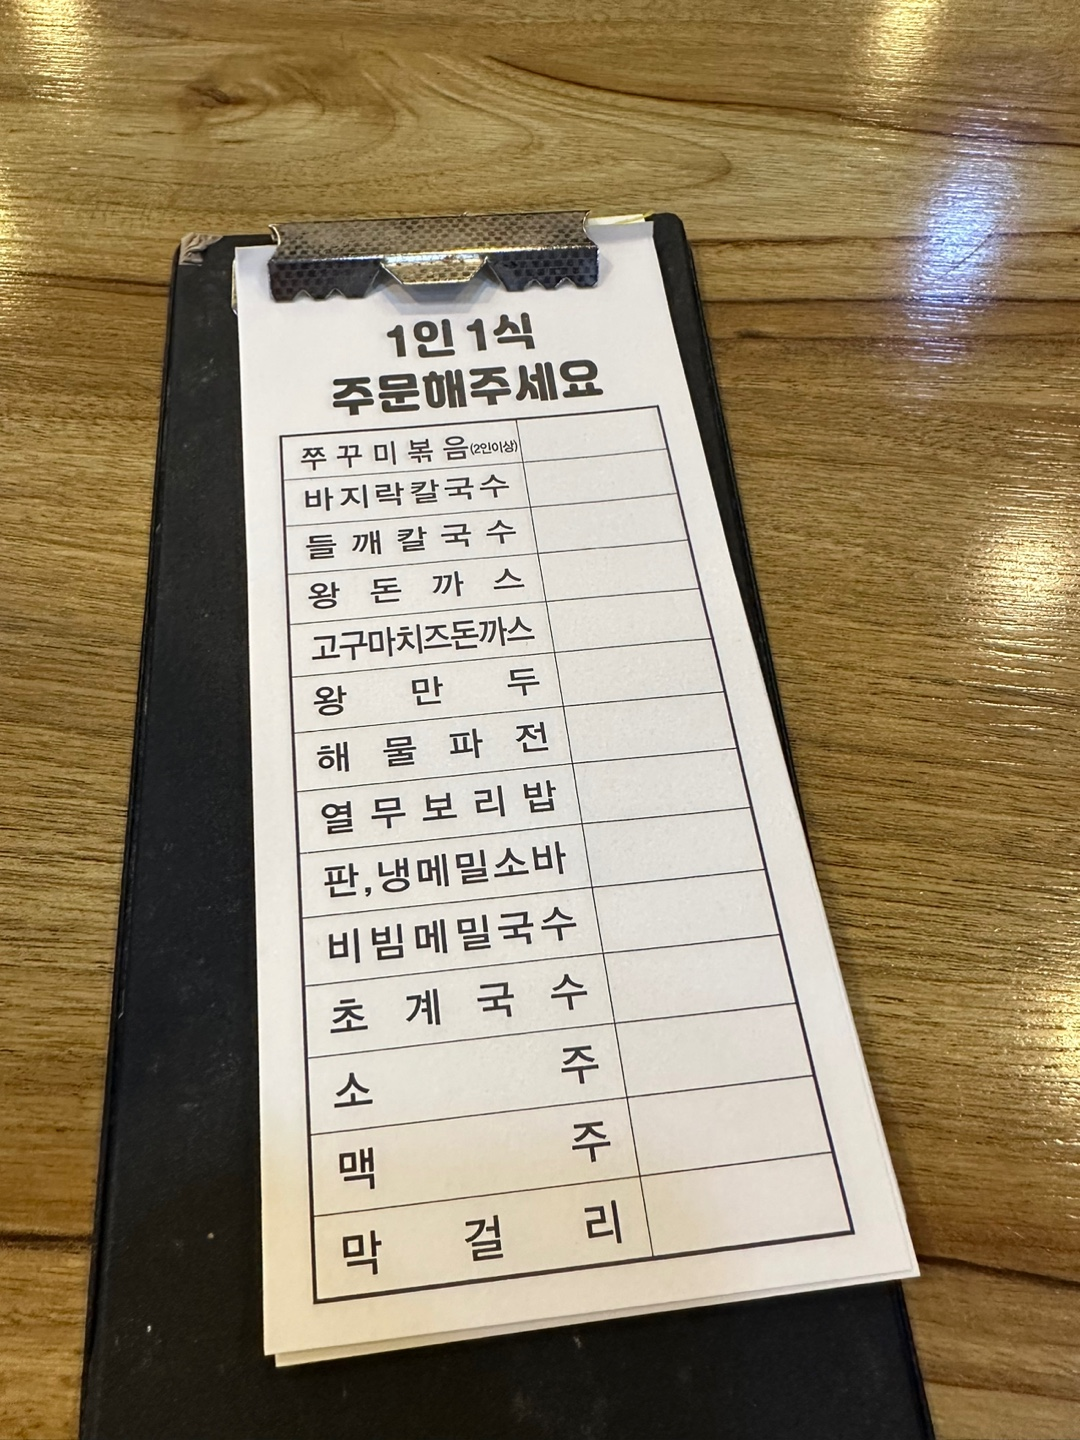 1인 1식
주문해주세요
쭈꾸미볶음(2인이상)
바지락칼국수
들깨칼국수
왕돈까스
고구마치즈돈까스
왕만두
해물파전
열무보리밥
판,냉메밀소바
비빔메밀국수
초계국수
소주
맥주
막걸리